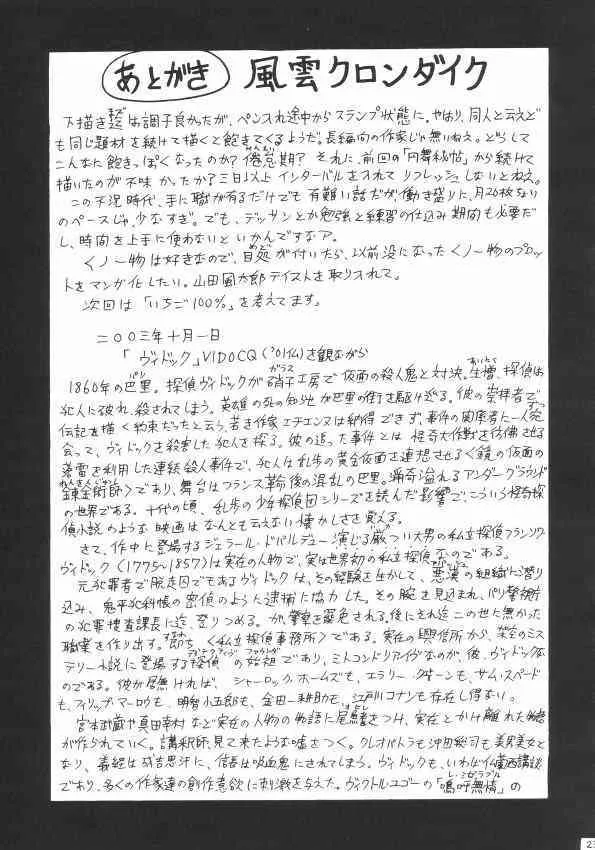 あとがき 風雲クロンダイク
下描き迄は調子良かったが、ペン入れ途中からスランプ状態に。やはり、同人と云えど
も同じ題材を続けて描くと飽きてくるようだ。長編向の作家じゃ無いねえ。どうして
こんなに飽きっぽくなったのか?倦怠期?それに、前回の「円舞秘帖」から続けて
描いたのが不味かったか?三日以上インターバルを入れてリフレッシュしないとねえ。
この不況時代、手に職が有るだけでも有難い話だが、働き盛りに、月20枚なり
のペースじゃ、少なすぎ。でも、デッサンとか勉強と練習の仕込み期間も必要だ
し、時間を上手に使わないといかんですなア。
くノ一物は好きなので、目処が付いたら、以前没になったくノ一物のプロッ
トをマンガ化したい。山田風太郎テイストを取り入れて。
次回は「いちご100%」を考えてます。
二〇〇三年十月一日
「ヴィドック」VIDOCQ('01仏)を観ながら
1860年の巴里。探偵ヴィドックが硝子工房で仮面の殺人鬼と対決。生憎、探偵は
犯人に破れ、殺されてしまう。英雄の死の知らせが巴里の街を駆け巡る。彼の崇拝者で
伝記を描く約束だったと云う若き作家エチエンヌは納得できず、事件の関係者に一人宛
会って、ヴィドックを殺害した犯人を探る。彼の追った事件とは怪奇大作戦を彷彿させる
落雷を利用した連続殺人事件で、犯人は乱歩の黄金仮面を連想させるく鏡の仮面の
錬金術師〉であり、舞台はフランス革命後の混乱の巴里。猟奇溢れるアンダーグラウンド
の世界である。十代の頃、乱歩の少年探偵団シリーズを読んだ影響で、こういう怪奇探
偵小説のような映画はなんとも云えない懐かしさを覚える。
さて、作中に登場するジェラール・ドパルデュー演じる厳つい大男の私立探偵フランソワ・
ヴィドック(1775〜1857)は実在の人物で、実は世界初の私立探偵なのである。
元犯罪者で脱走囚でもあるヴィドックは、その経験を生かして、悪漢の組織に潜り
込み、鬼平犯科帳の密偵のように逮捕に協力した。その腕を見込まれ、パリ警視庁
の犯罪捜査課長に迄、登りつめる。が、警察を罷免される。後にそれ迄この世に無かった
職業を作り出す。即ち〈私立探偵事務所〉である。実在の興信所から、架空のミス
テリー小説に登場する探偵の始祖であり、ミトコンドリアイヴなのが、彼、ヴィドックな
のである。彼が居無ければ、シャーロック・ホームズも、エラリー・クイーンも、サム・スペード
も、フィリップ・マーロウも、明智小五郎も、金田一耕助も、江戸川コナンも存在し得ない。
宮本武蔵や真田幸村など実在の人物の物語に尾鰭をつけ、実在とかけ離れた物語
が作られていく。講釈師、見て来たような嘘をつく。クレオパトラも沖田総司も美男美女と
なり、義経は成吉思汗に、信長は吸血鬼にされてしまう。ヴィドックも、いわば仏蘭西講談
であり、多くの作家達の創作意欲に刺激を与えた。ヴィクトル・ユゴーの「嗚呼無情」の